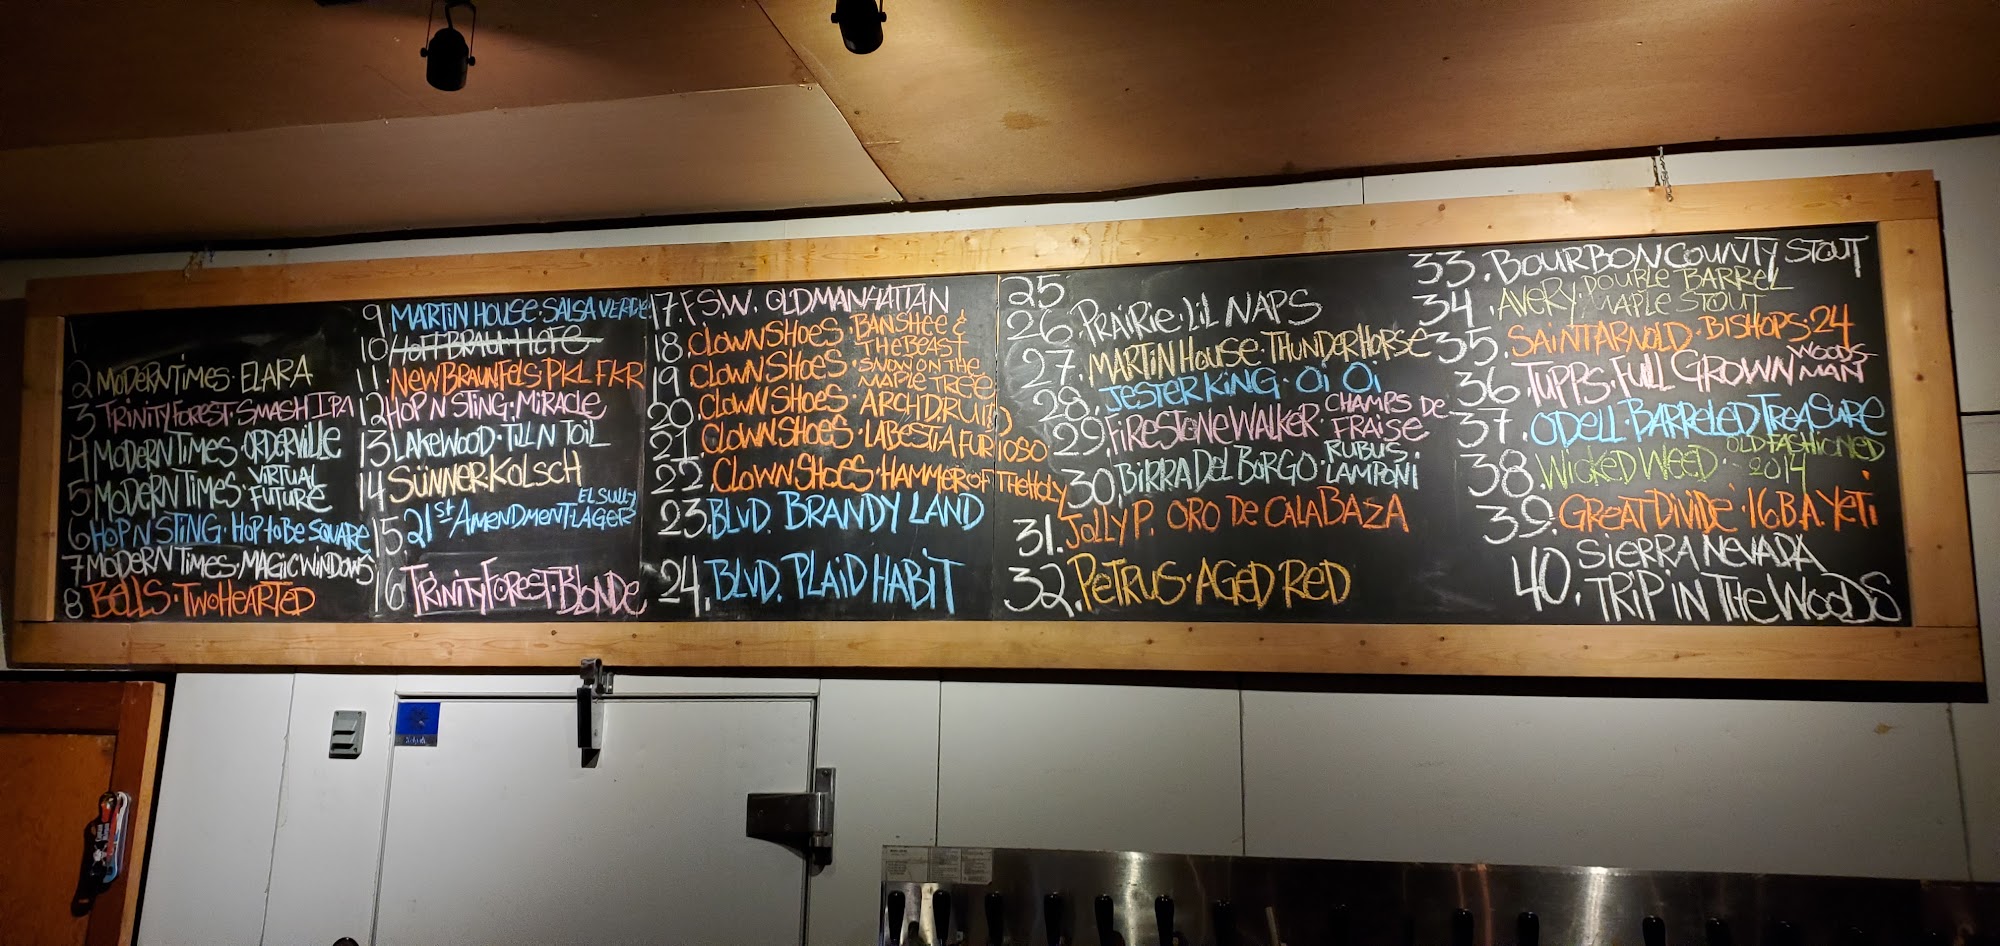 1
2 MODERN TIMES · ELARA
3 TRINITY FOREST · SMASH IPA
4 MODERN TIMES · ORDERVILLE
5 MODERN TIMES · VIRTUAL
FUTURE
6 HOP N STING · HOP TO BE SQUARE
7 MODERN TIMES · MAGIC WINDOWS
8 BELLS · TWO HEARTED
9 MARTIN HOUSE · SALSA VERDE
10 HOFFBRAU · HEFE
11 NEW BRAUNFELS · PKL FKR
12 HOP N STING · MIRACLE
13 LAKEWOOD · TILL N TOIL
14 SÜNNER KOLSCH
EL SULLY
15. 21ST AMENDMENT · LAGER
16 TRINITY FOREST · BLONDE
17. F.S.W. OLD MANHATTAN
18. CLOWN SHOES · BANSHEE &
THE BEAST
19 CLOWN SHOES · SNOW ON THE
MAPLE TREE
20. CLOWN SHOES · ARCHDRUID
21. CLOWN SHOES · LA BESTIA FURIOSO
22. CLOWN SHOES · HAMMER OF THE HOLY
23. BLVD. BRANDY LAND
24. BLVD. PLAID HABIT
25
26. PRAIRIE · LIL NAPS
27. MARTIN HOUSE · THUNDER HORSE
28. JESTER KING · OI OI
29. FIRESTONE WALKER · CHAMPS DE
FRAISE
30. BIRRA DEL BORGO · RUBUS ·
LAMPONI
31. JOLLY P. ORO DE CALABAZA
32. PETRUS · AGED RED
33. BOURBON COUNTY STOUT
34. AVERY · DOUBLE BARREL
MAPLE STOUT
35. SAINT ARNOLD · BISHOPS · 24
36. TUPPS · FULL GROWN WOODS-
MAN
37. ODELL · BARRELED TREASURE
38. WICKED WEED · OLD FASHIONED
2014
39. GREAT DIVIDE · 16 B.A. YETI
40. SIERRA NEVADA
TRIP IN THE WOODS